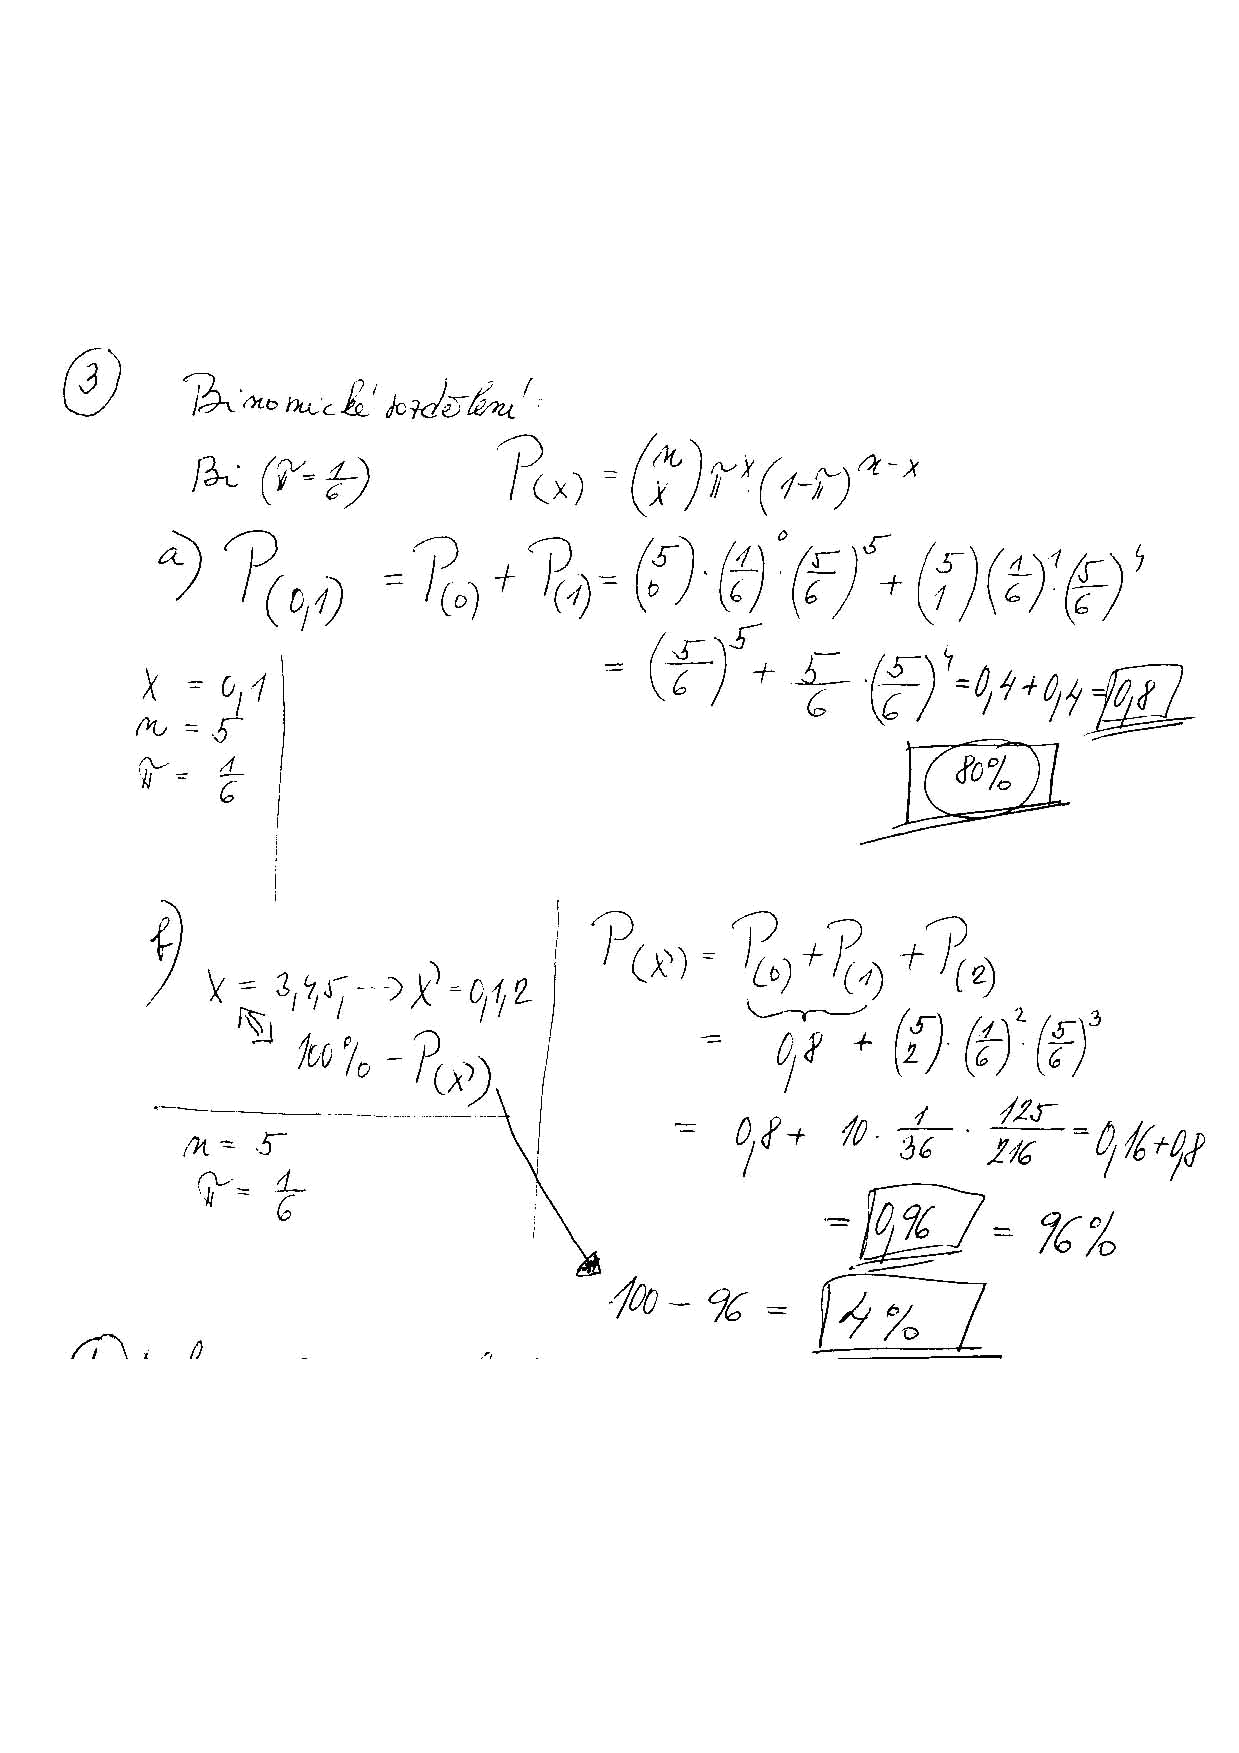 3
Binomické rozdělení:
Bi (π = 1/6) P(x) = (n x) π^x · (1-π)^(n-x)
a) P(0,1) = P(0) + P(1) = (5 0) · (1/6)^0 · (5/6)^5 + (5 1) (1/6)^1 · (5/6)^4
= (5/6)^5 + 5/6 · (5/6)^4 = 0,4 + 0,4 = 0,8
x = 0,1
n = 5
π = 1/6
80%
b) x = 3,4,5, --> x' = 0,1,2
100% - P(x')
n = 5
π = 1/6
P(x') = P(0) + P(1) + P(2)
= 0,8 + (5 2) · (1/6)^2 · (5/6)^3
= 0,8 + 10 · 1/36 · 125/216 = 0,16 + 0,8
= 0,96 = 96%
100 - 96 = 4%